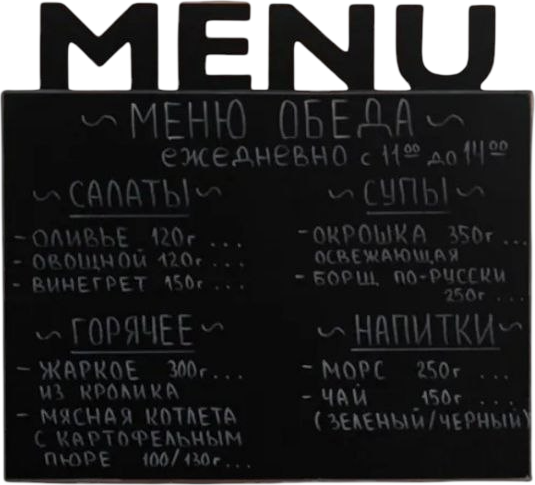 MENU
МЕНЮ ОБЕДА
ежедневно с 11⁰⁰ до 14⁰⁰
САЛАТЫ
- ОЛИВЬЕ 120г ...
- ОВОЩНОЙ 120г ...
- ВИНЕГРЕТ 150г ...
СУПЫ
- ОКРОШКА 350г ...
ОСВЕЖАЮЩАЯ
- БОРЩ ПО-РУССКИ
250г ...
ГОРЯЧЕЕ
- ЖАРКОЕ 300г ...
ИЗ КРОЛИКА
- МЯСНАЯ КОТЛЕТА
С КАРТОФЕЛЬНЫМ
ПЮРЕ 100/130г ...
НАПИТКИ
- МОРС 250г ...
- ЧАЙ 150г ...
(ЗЕЛЕНЫЙ/ЧЕРНЫЙ)